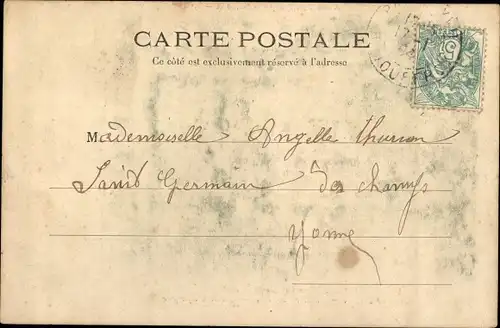 CARTE POSTALE
Ce côté est exclusivement réservé à l'adresse
Mademoiselle Angelle
Saint Germain des champs
Yonne